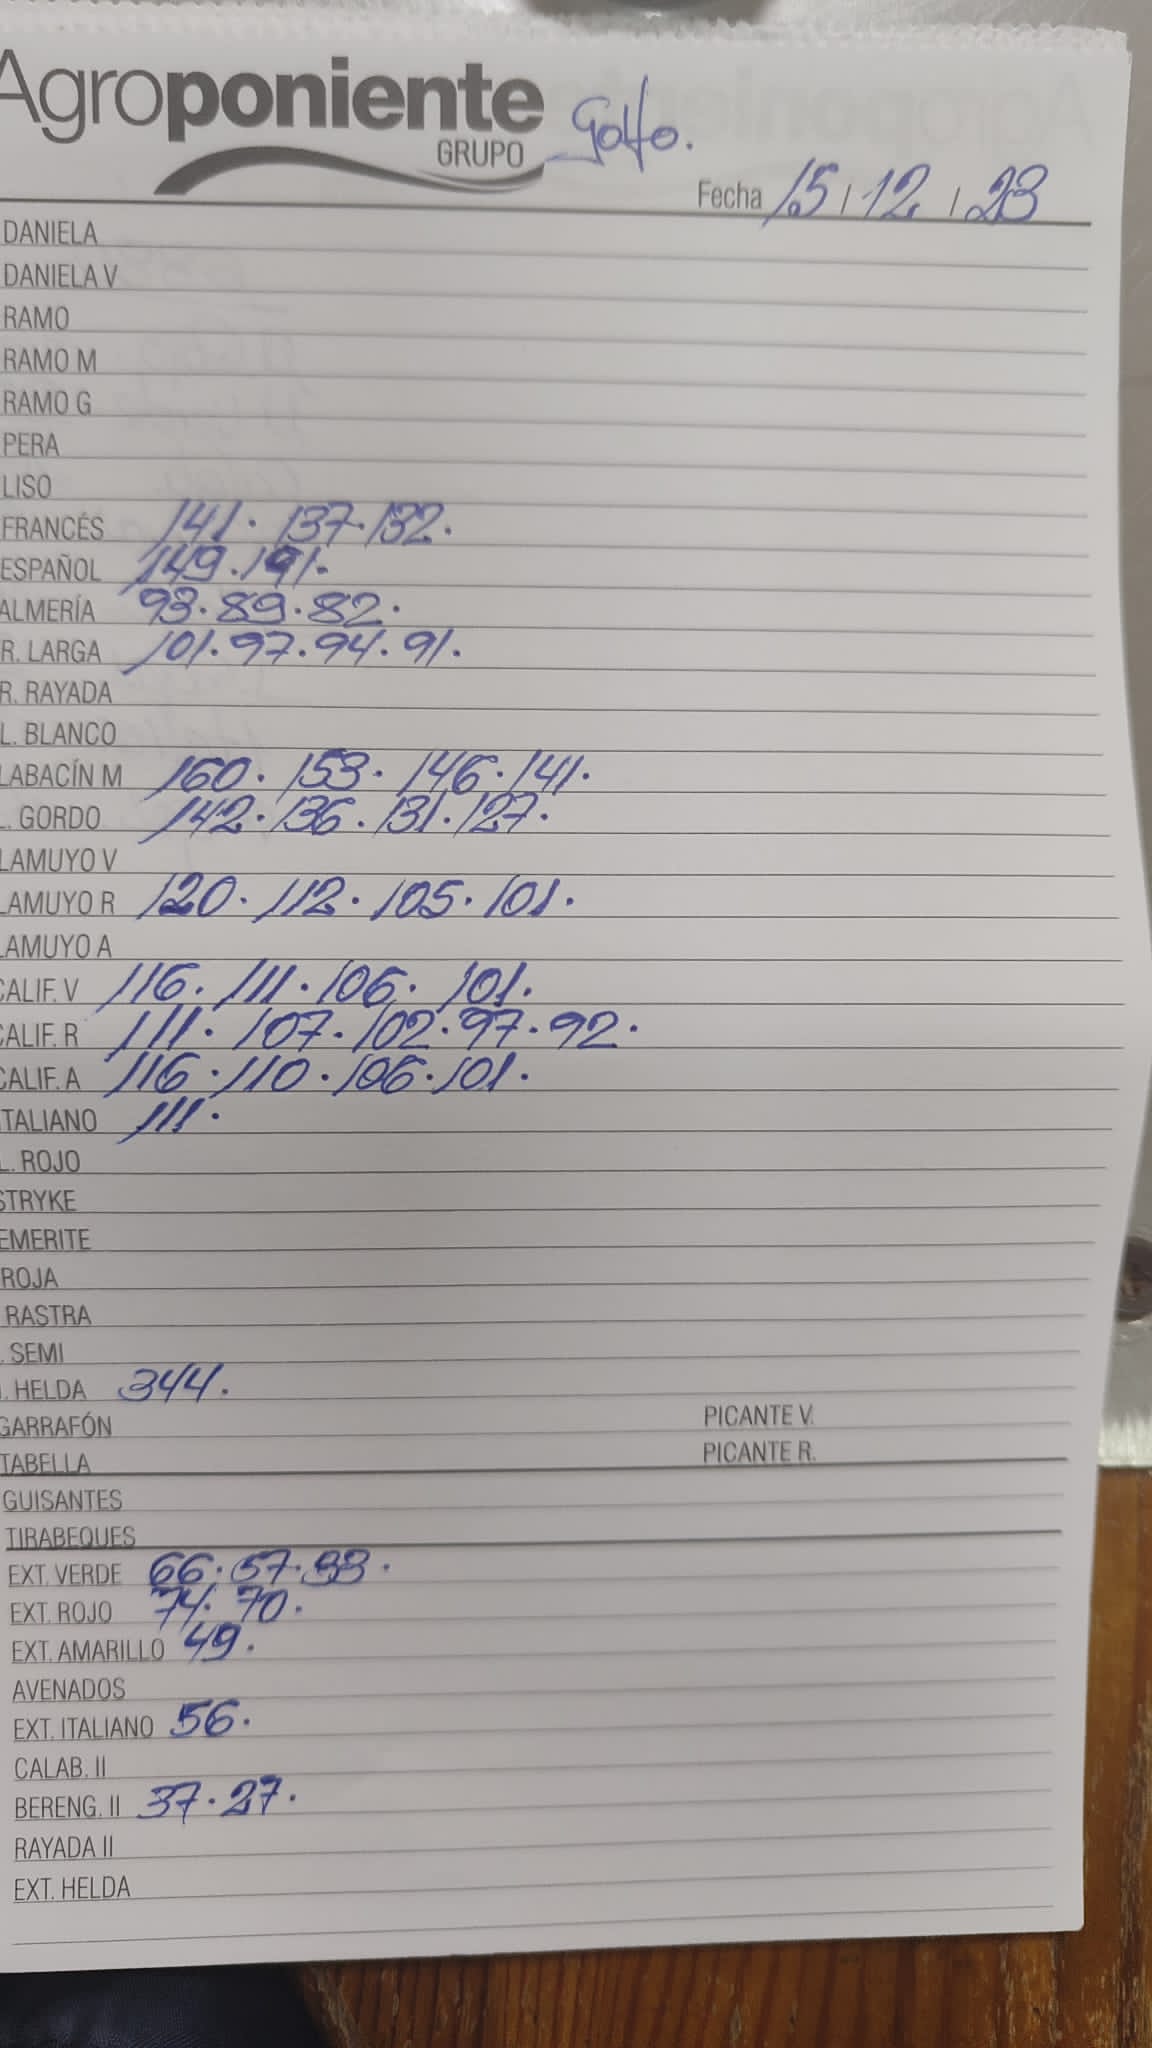 Agroponiente
GRUPO
Golfo.
Fecha 15 / 12 / 23
DANIELA
DANIELA V
RAMO
RAMO M
RAMO G
PERA
LISO
FRANCÉS 141. 137. 132.
ESPAÑOL 149. 191.
ALMERÍA 93. 89. 82.
R. LARGA 101. 97. 94. 91.
R. RAYADA
L. BLANCO
LABACÍN M 160. 153. 146. 141.
L. GORDO 142. 136. 131. 127.
LAMUYO V
LAMUYO R 120. 112. 105. 101.
LAMUYO A
CALIF. V 116. 111. 106. 101.
CALIF. R 111. 107. 102. 97. 92.
CALIF. A 116. 110. 106. 101.
ITALIANO 111.
L. ROJO
STRYKE
EMERITE
ROJA
RASTRA
. SEMI
. HELDA 344.
GARRAFÓN PICANTE V.
TABELLA PICANTE R.
GUISANTES
TIRABEQUES
EXT. VERDE 66. 57.
EXT. ROJO 74. 70.
EXT. AMARILLO 49.
AVENADOS
EXT. ITALIANO 56.
CALAB. II
BERENG. II 37. 27.
RAYADA II
EXT. HELDA